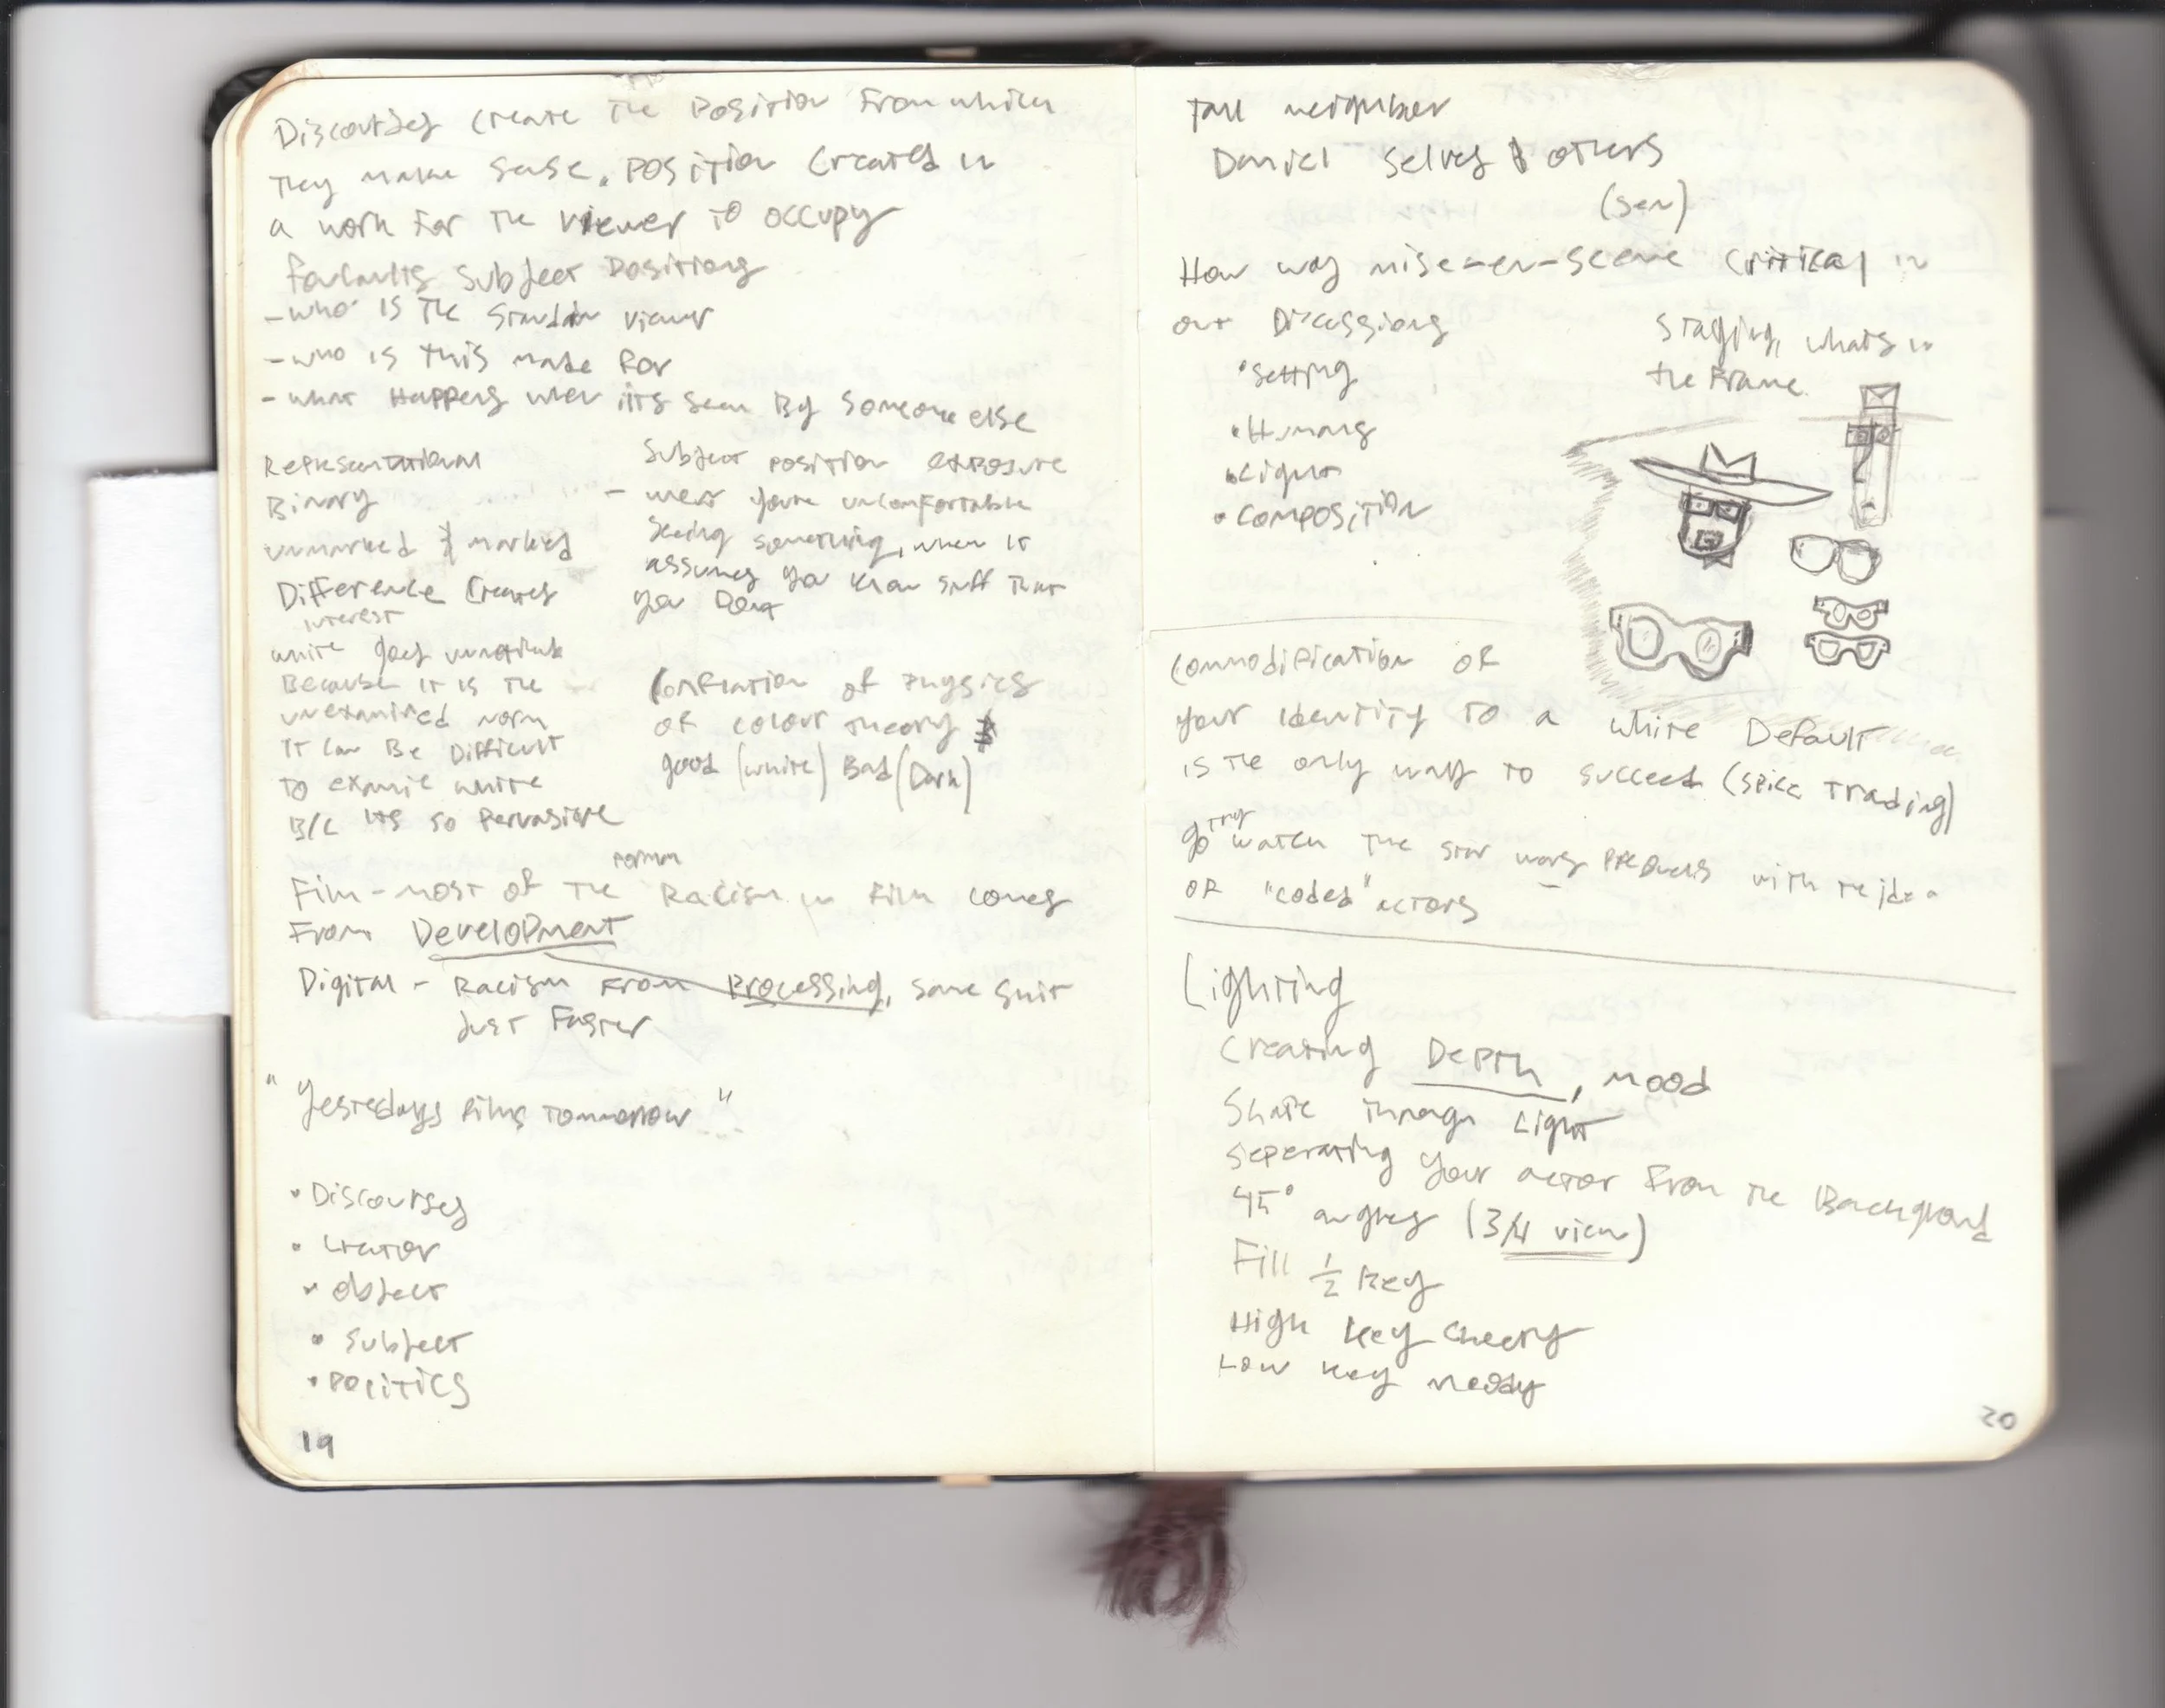 Discourses create the Position From which
They make sense. Position Created in
a work for the Viewer to occupy
Foucaults Subject Positions
- who is the viewer
- who is this made for
- what Happens when its seen By Someone else
Representational
Binary
unmarked & marked
Difference Creates
interest
white goes
Because it is the
unexamined norm
It can Be Difficult
to examine white
B/c its so Pervasive
Subject position exposure
- when you're uncomfortable
Seeing something, when it
assumes you know stuff that
you Dont
Conflation of Physics
of colour theory &
good (white) Bad (Dark)
Film - most of the Racism in Film comes
From Development
Digital - Racism From Processing, same shit
Just Faster
"Yesterdays films tomorrow"
• Discourses
• Creator
• Object
• Subject
• Politics
19
Tall neighbor
Daniel Selves & others
(Sen)
How was mise-en-scene Critical in
our Discussions
• Setting
• Humans
• Light
• Composition
Staging, whats in
the Frame
Commodification of
your Identity to a white Default
is the only way to succeed (spice Trading)
go try watch the star wars Prequels with the idea
of "coded" actors
Lighting
Creating Depth, mood
Shape through Light
Seperating your actor From the Background
45° angles (3/4 view)
Fill 1/2 Key
High Key Cheery
Low key moody
20